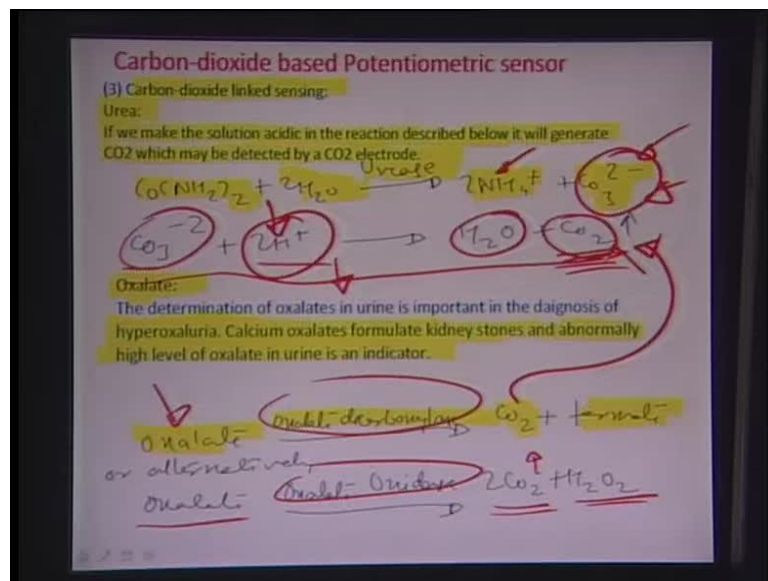 Carbon-dioxide based Potentiometric sensor
(3) Carbon-dioxide linked sensing:
Urea:
If we make the solution acidic in the reaction described below it will generate
CO2 which may be detected by a CO2 electrode.
Urease
CO(NH2)2 + 2H2O → 2NH4+ + CO3 2-
CO3 -2 + 2H+ → H2O + CO2 ↑
Oxalate:
The determination of oxalates in urine is important in the daignosis of
hyperoxaluria. Calcium oxalates formulate kidney stones and abnormally
high level of oxalate in urine is an indicator.
oxalate oxalate decarboxylase → CO2 + formate
or alternatively
oxalate Oxalate Oxidase → 2CO2 + H2O2